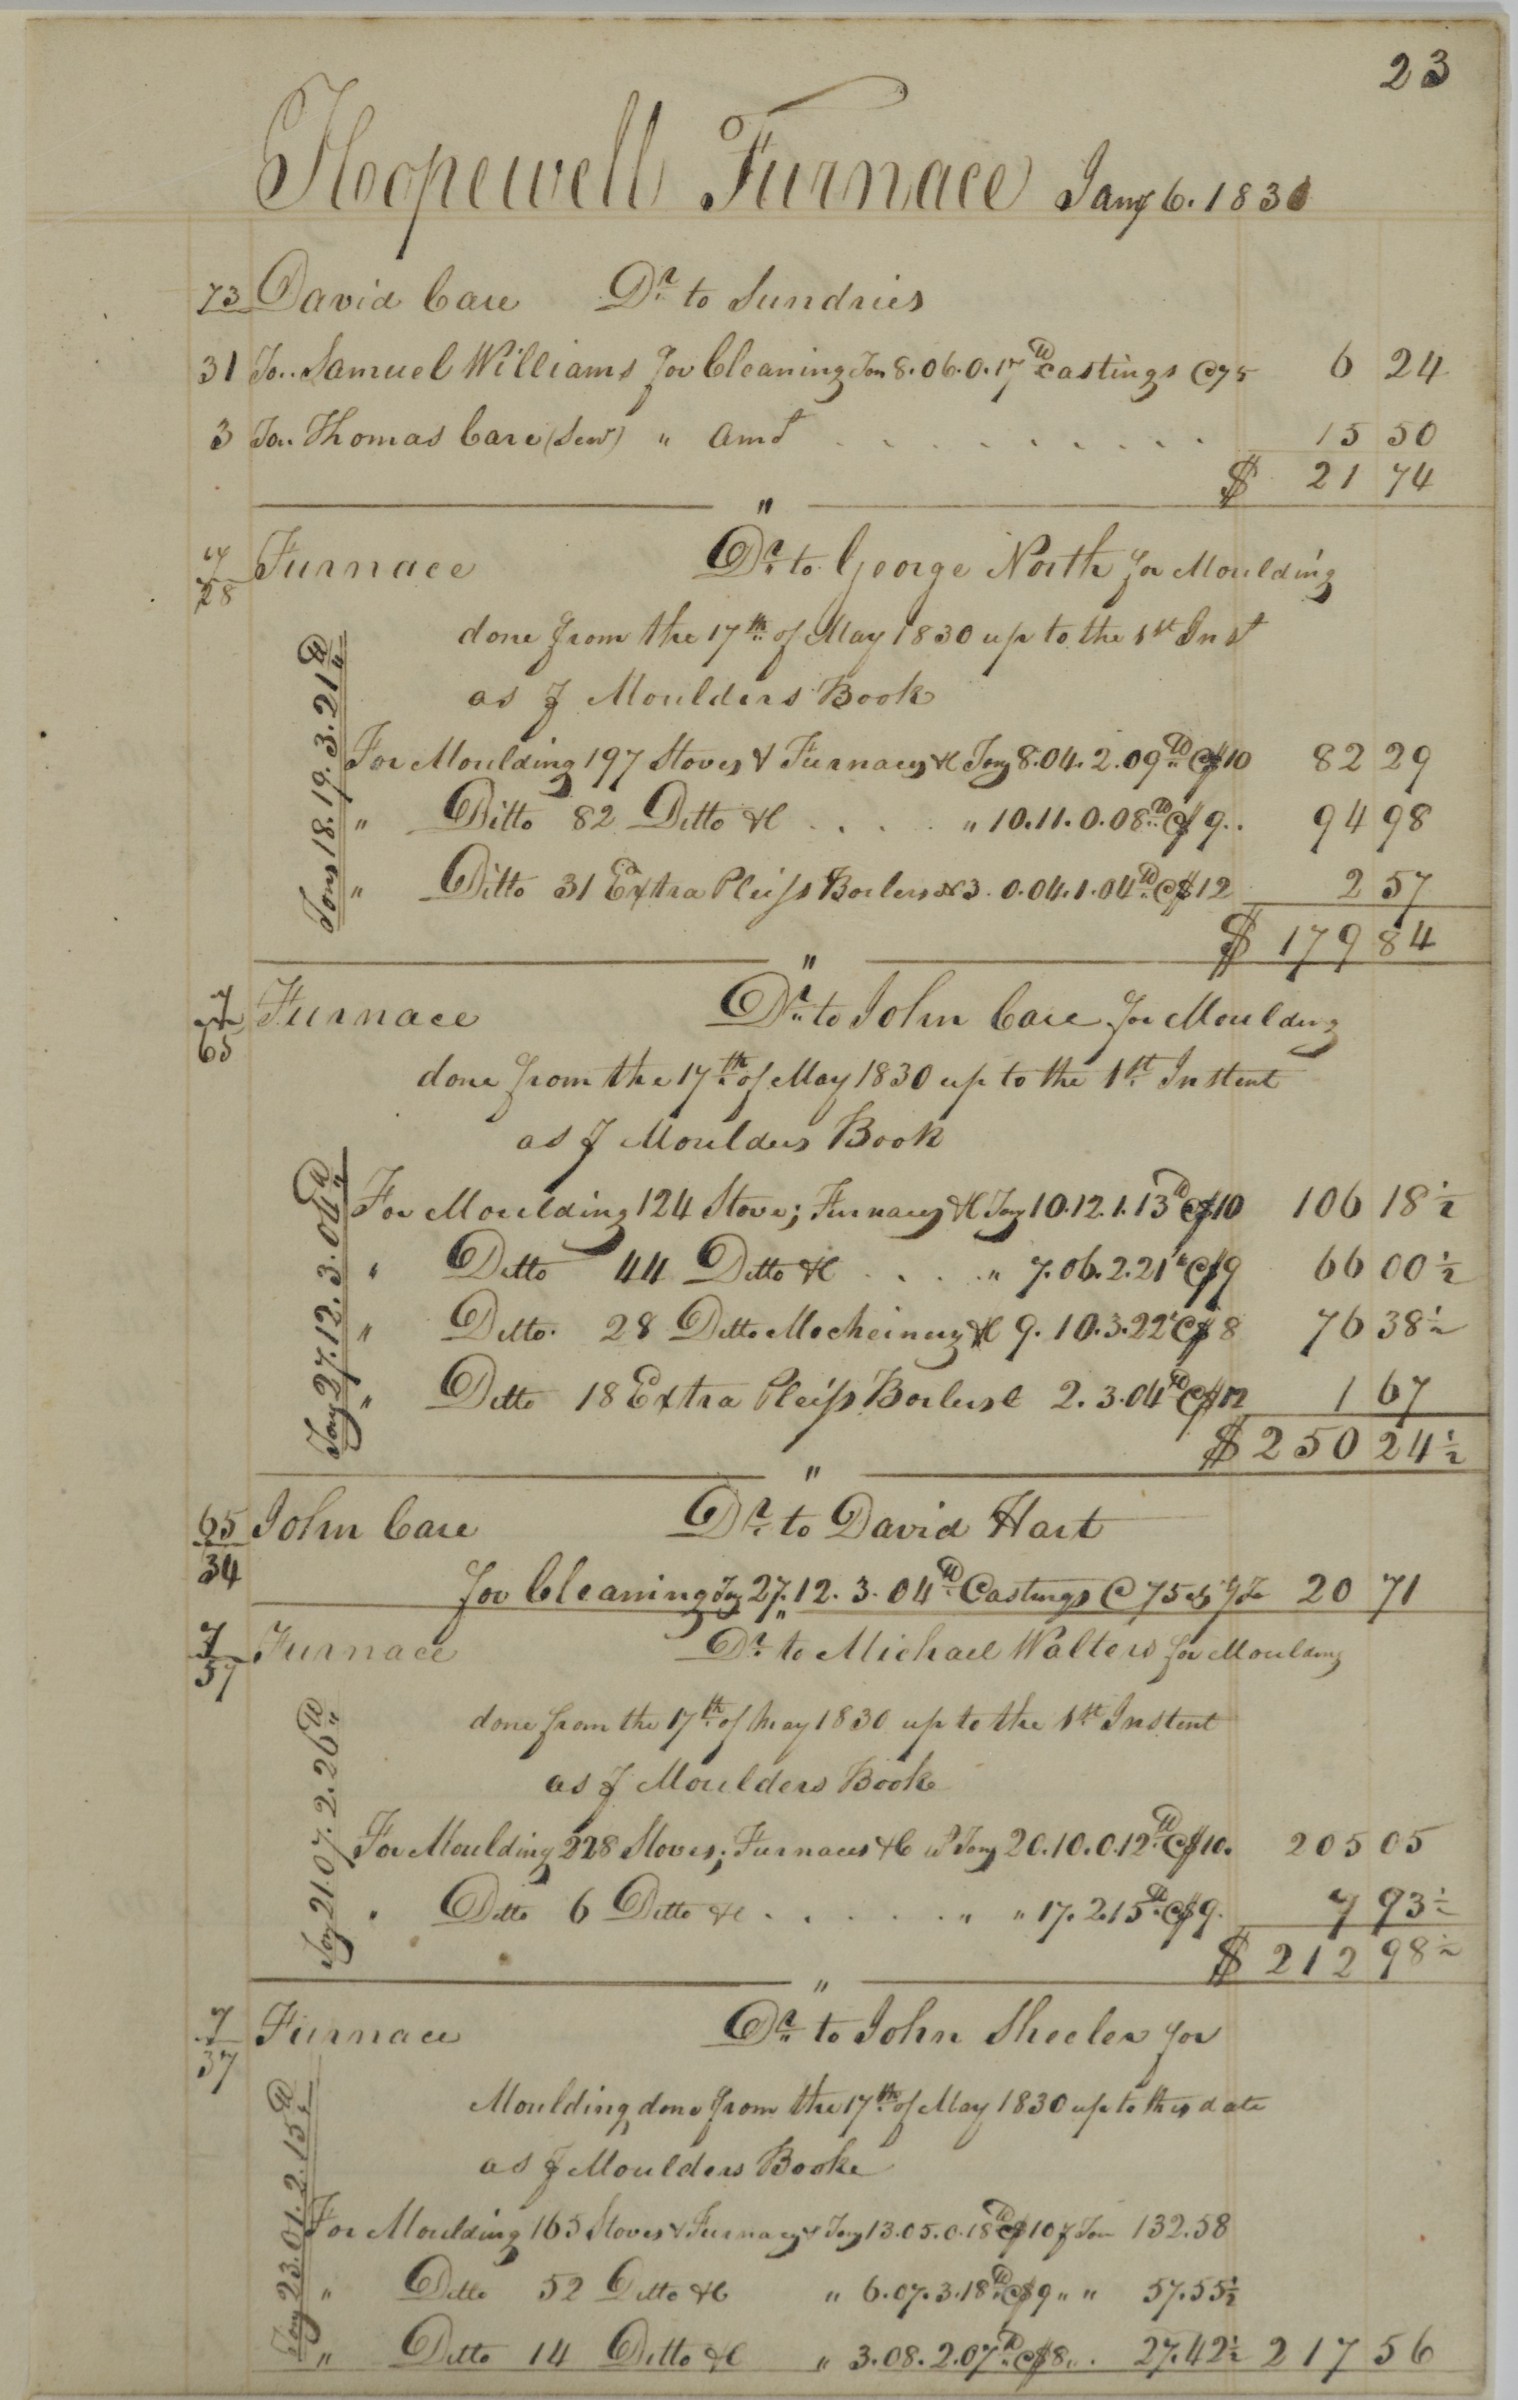 23
Hopewell Furnace Jany 6. 1831
73 David Care Dr. to Sundries
31 To.. Samuel Williams for Cleaning Ton 8.06.0.17 lb Castings @75 6 24
3 To.. Thomas Care (Senr) " Amt . . . . . . . . . . 15 50
$ 21 74
"
7/28 Furnace Dr. to George North for Moulding
done from the 17th of May 1830 up to the 1st Inst
as ⅌ Moulders Book
Tons 18.19.3.21 lb
For Moulding 197 Stoves & Furnaces &c Tons 8.04.2.09 lb @$10 82 29
" Ditto 82 Ditto &c . . . . " 10.11.0.08 lb @$ 9.. 94 98
" Ditto 31 Extra Pleiss Boilers &c . 0.04.1.04 lb @$12 2 57
$ 179 84
"
7/65 Furnace Dr. to John Care for Moulding
done from the 17th of May 1830 up to the 1st Instent
as ⅌ Moulders Book
Tons 27.12.3.04 lb
For Moulding 124 Stove; Furnaces &c Tons 10.12.1.13 lb @$10 106 18 ½
" Ditto 44 Ditto &c . . . . " 7.06.2.21 lb @$9 66 00 ½
" Ditto. 28 Ditto Mecheinery &c 9.10.3.22 lb @$ 8 76 38 ½
" Ditto 18 Extra Pleiss Boilers &c 2.3.04 lb @$12 1 67
$ 250 24 ½
"
65/34 John Care Dr. to David Hart
for Cleaning Tons 27.12.3.04 lb Castings @ 75 cts ⅌ Ton 20 71
"
7/57 Furnace Dr. to Michael Walters for Moulding
done from the 17th of May 1830 up to the 1st Instent
as ⅌ Moulders Book
Tons 21.07.2.26 lb
For Moulding 228 Stoves; Furnaces &c Tons 20.10.0.12 lb @$10. 205 05
" Ditto 6 Ditto &c . . . . . . " " 17.2.15 lb @$9. 7 93 ½
$ 212 98 ½
"
7/37 Furnace Dr. to John Sheeler for
Moulding done from the 17th of May 1830 up to this date
as ⅌ Moulders Booke
Tons 23.01.2.15 lb
For Moulding 165 Stoves & Furnaces & Tons 13.05.0.18 lb @$10 ⅌ Ton 132.58
" Ditto 52 Ditto &c " 6.07.3.18 lb @$9 " " 57.55½
" Ditto 14 Ditto &c " 3.08.2.07 lb @$8 " . 27.42½ 217 56